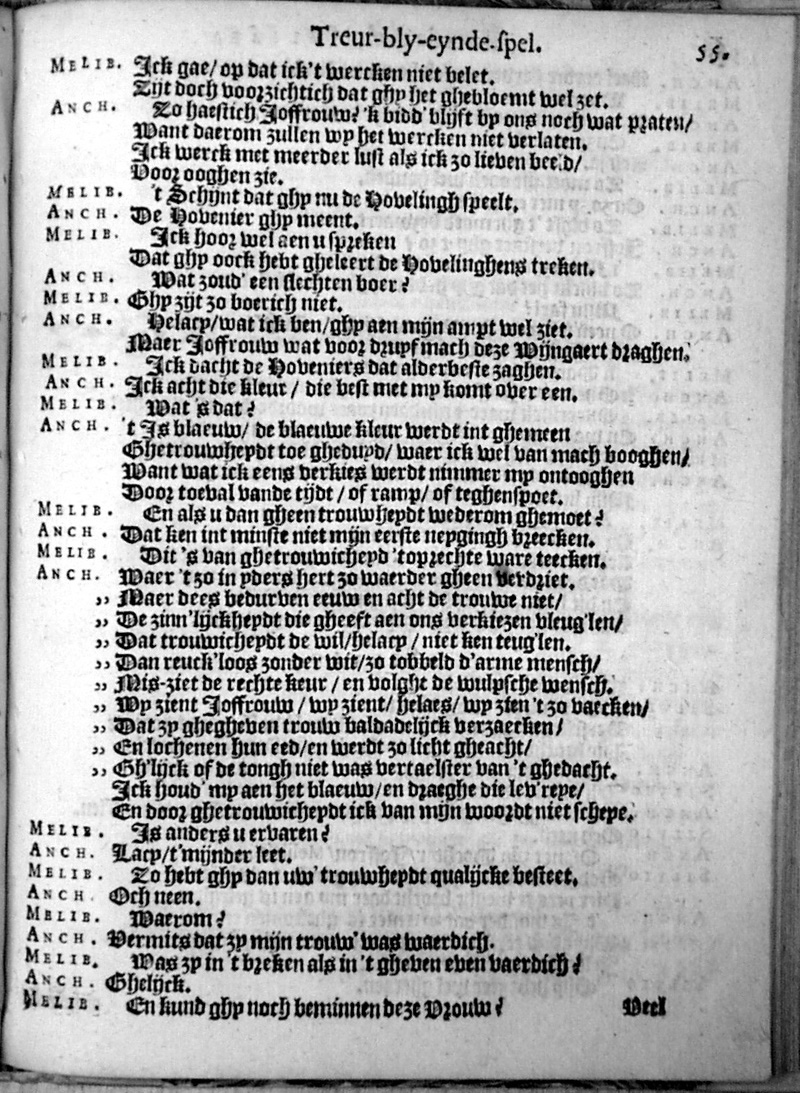 Treur-bly-eynde-spel.
55.
MELIB. Ick gae/ op dat ick't wercken niet belet.
Zijt doch voorzichtich dat ghy het ghebloemt wel zet.
ANCH. Zo haestich Joffrouw? 'k bidd' blijft by ons noch wat praten/
Want daerom zullen wy het wercken niet verlaten.
Ick werck met meerder lust als ick zo lieven beeld/
Voor ooghen zie.
MELIB. 't Schijnt dat ghy nu de Hovelingh speelt.
ANCH. De Hovenier ghy meent.
MELIB. Ick hoor wel aen u spreken
Dat ghy oock hebt gheleert de Hovelinghens treken.
ANCH. Wat zoud' een slechten boer?
MELIB. Ghy zijt zo boerich niet.
ANCH. Helacy/ wat ick ben/ ghy aen mijn ampt wel ziet.
Maer Joffrouw wat voor druyf mach deze Wijngaert draghen.
MELIB. Ick dacht de Hoveniers dat alderbeste zaghen.
ANCH. Ick acht die kleur / die best met my komt over een.
MELIB. Wat 's dat?
ANCH. 't Is blaeuw/ de blaeuwe kleur werdt int ghemeen
Ghetrouwheydt toe gheduyd/ waer ick wel van mach booghen/
Want wat ick eens verkies werdt nimmer my ontooghen
Door toeval vande tijdt / of ramp/ of teghenspoet.
MELIB. En als u dan gheen trouwheydt wederom ghemoet?
ANCH. Dat ken int minste niet mijn eerste neygingh breecken.
MELIB. Dit 's van ghetrouwicheyd 'toprechte ware teecken.
ANCH. Waer 't zo in yders hert zo waerder gheen verdriet.
,, Maer dees bedurven eeuw en acht de trouwe niet/
,, De zinn'lijckheydt die gheeft aen ons verkiezen vleug'len/
,, Dat trouwicheydt de wil/ helacy / niet ken teug'len.
,, Dan reuck'loos zonder wit/ zo tobbeld d'arme mensch/
,, Mis-ziet de rechte keur / en volght de wulpsche wensch.
,, Wy zient Joffrouw / wy zient/ helaes/ wy zien 't zo vaecken/
,, Dat zy ghegheven trouw baldadelijck verzaecken/
,, En lochenen hun eed/ en werdt zo licht gheacht/
,, Gh'lijck of de tongh niet was vertaelster van 't ghedacht.
Ick houd' my aen het blaeuw/ en draeghe die lev'reye/
En door ghetrouwicheydt ick van mijn woordt niet scheye.
MELIB. Is anders u ervaren?
ANCH. Lacy/ t'mijnder leet.
MELIB. Zo hebt ghy dan uw' trouwheydt qualijcke besteet.
ANCH. Och neen.
MELIB. Waerom?
ANCH. Vermits dat zy mijn trouw' was waerdich.
MELIB. Was zy in 't breken als in 't gheven even vaerdich?
ANCH. Ghelijck.
MELIB. En kund ghy noch beminnen deze Vrouw?
Veel